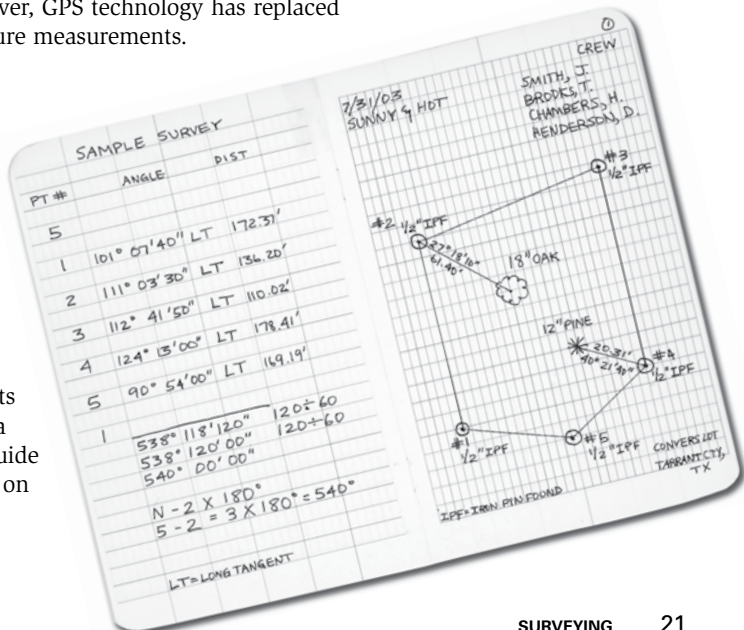 ver, GPS technology has replaced
ure measurements.
ts
a
uide
on
SAMPLE SURVEY
PT # ANGLE DIST
5
1 101° 07'40" LT 172.37'
2 111° 03'30" LT 136.20'
3 112° 41'50" LT 110.02'
4 124° 13'00" LT 178.41'
5 90° 54'00" LT 169.19'
1
538° 118'120" 120÷60
538° 120'00" 120÷60
540° 00'00"
N-2 X 180°
5-2 = 3 X 180° = 540°
LT=LONG TANGENT
1
CREW
7/31/03
SUNNY & HOT
SMITH, J.
BROOKS, T.
CHAMBERS, H.
HENDERSON, D.
#3
1/2" IPF
#2 1/2" IPF
27°18'10"
61.40'
18" OAK
12" PINE
20.31'
40°21'40"
#4
1/2" IPF
#1
1/2" IPF
#5
1/2" IPF
CONVERS LOT
TARRANT CTY,
TX
IPF=IRON PIN FOUND
SURVEYING 21